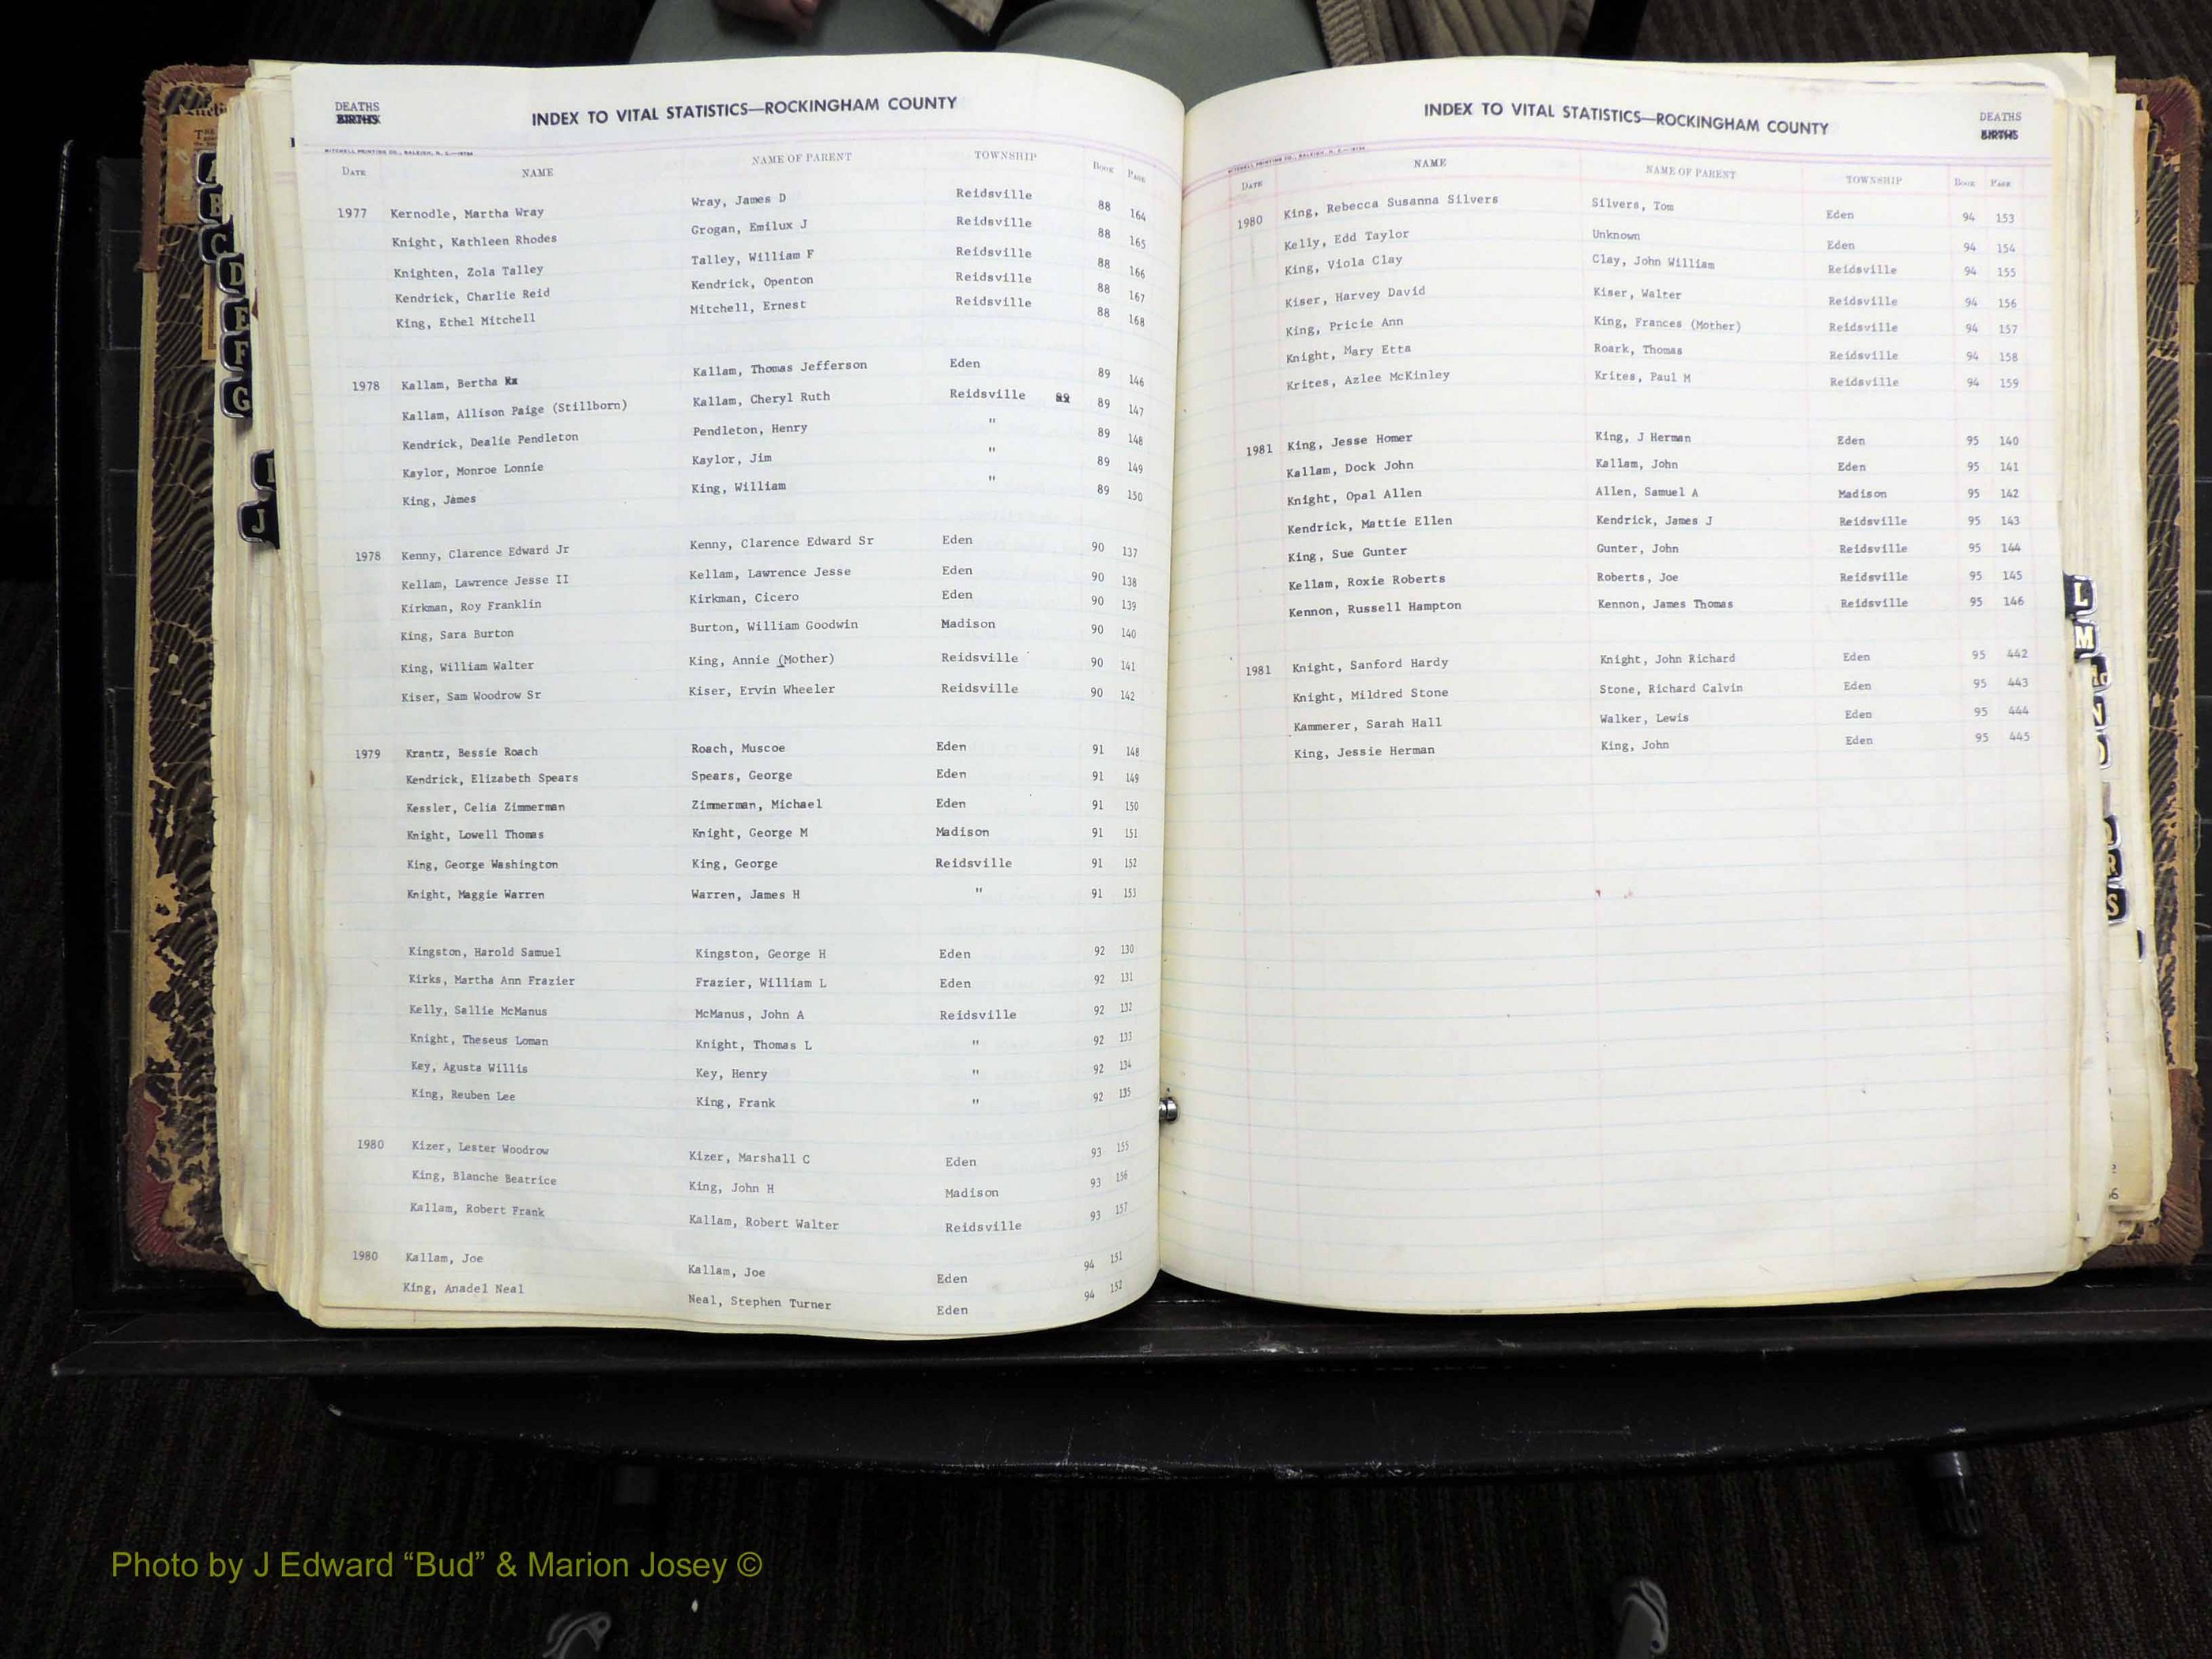 DEATHS
BIRTHS
INDEX TO VITAL STATISTICS—ROCKINGHAM COUNTY
MITCHELL PRINTING CO., RALEIGH, N. C.
DATE NAME NAME OF PARENT TOWNSHIP BOOK PAGE
1977 Kernodle, Martha Wray Wray, James D Reidsville 88 164
Knight, Kathleen Rhodes Grogan, Emilux J Reidsville 88 165
Knighten, Zola Talley Talley, William F Reidsville 88 166
Kendrick, Charlie Reid Kendrick, Openton Reidsville 88 167
King, Ethel Mitchell Mitchell, Ernest Reidsville 88 168
1978 Kallam, Bertha Kallam, Thomas Jefferson Eden 89 146
Kallam, Allison Paige (Stillborn) Kallam, Cheryl Ruth Reidsville 89 147
Kendrick, Dealie Pendleton Pendleton, Henry " 89 148
Kaylor, Monroe Lonnie Kaylor, Jim " 89 149
King, James King, William " 89 150
1978 Kenny, Clarence Edward Jr Kenny, Clarence Edward Sr Eden 90 137
Kellam, Lawrence Jesse II Kellam, Lawrence Jesse Eden 90 138
Kirkman, Roy Franklin Kirkman, Cicero Eden 90 139
King, Sara Burton Burton, William Goodwin Madison 90 140
King, William Walter King, Annie (Mother) Reidsville 90 141
Kiser, Sam Woodrow Sr Kiser, Ervin Wheeler Reidsville 90 142
1979 Krantz, Bessie Roach Roach, Muscoe Eden 91 148
Kendrick, Elizabeth Spears Spears, George Eden 91 149
Kessler, Celia Zimmerman Zimmerman, Michael Eden 91 150
Knight, Lowell Thomas Knight, George M Madison 91 151
King, George Washington King, George Reidsville 91 152
Knight, Maggie Warren Warren, James H " 91 153
Kingston, Harold Samuel Kingston, George H Eden 92 130
Kirks, Martha Ann Frazier Frazier, William L Eden 92 131
Kelly, Sallie McManus McManus, John A Reidsville 92 132
Knight, Theseus Loman Knight, Thomas L " 92 133
Key, Agusta Willis Key, Henry " 92 134
King, Reuben Lee King, Frank " 92 135
1980 Kizer, Lester Woodrow Kizer, Marshall C Eden 93 155
King, Blanche Beatrice King, John H Madison 93 156
Kallam, Robert Frank Kallam, Robert Walter Reidsville 93 157
1980 Kallam, Joe Kallam, Joe Eden 94 151
King, Anadel Neal Neal, Stephen Turner Eden 94 152
A
B
C
D
E
F
G
I
J
INDEX TO VITAL STATISTICS—ROCKINGHAM COUNTY
DEATHS
BIRTHS
MITCHELL PRINTING CO., RALEIGH, N. C.
DATE NAME NAME OF PARENT TOWNSHIP BOOK PAGE
1980 King, Rebecca Susanna Silvers Silvers, Tom Eden 94 153
Kelly, Edd Taylor Unknown Eden 94 154
King, Viola Clay Clay, John William Reidsville 94 155
Kiser, Harvey David Kiser, Walter Reidsville 94 156
King, Pricie Ann King, Frances (Mother) Reidsville 94 157
Knight, Mary Etta Roark, Thomas Reidsville 94 158
Krites, Azlee McKinley Krites, Paul M Reidsville 94 159
1981 King, Jesse Homer King, J Herman Eden 95 140
Kallam, Dock John Kallam, John Eden 95 141
Knight, Opal Allen Allen, Samuel A Madison 95 142
Kendrick, Mattie Ellen Kendrick, James J Reidsville 95 143
King, Sue Gunter Gunter, John Reidsville 95 144
Kellam, Roxie Roberts Roberts, Joe Reidsville 95 145
Kennon, Russell Hampton Kennon, James Thomas Reidsville 95 146
1981 Knight, Sanford Hardy Knight, John Richard Eden 95 442
Knight, Mildred Stone Stone, Richard Calvin Eden 95 443
Kammerer, Sarah Hall Walker, Lewis Eden 95 444
King, Jessie Herman King, John Eden 95 445
L
M
N
R
S
Photo by J Edward “Bud” & Marion Josey ©